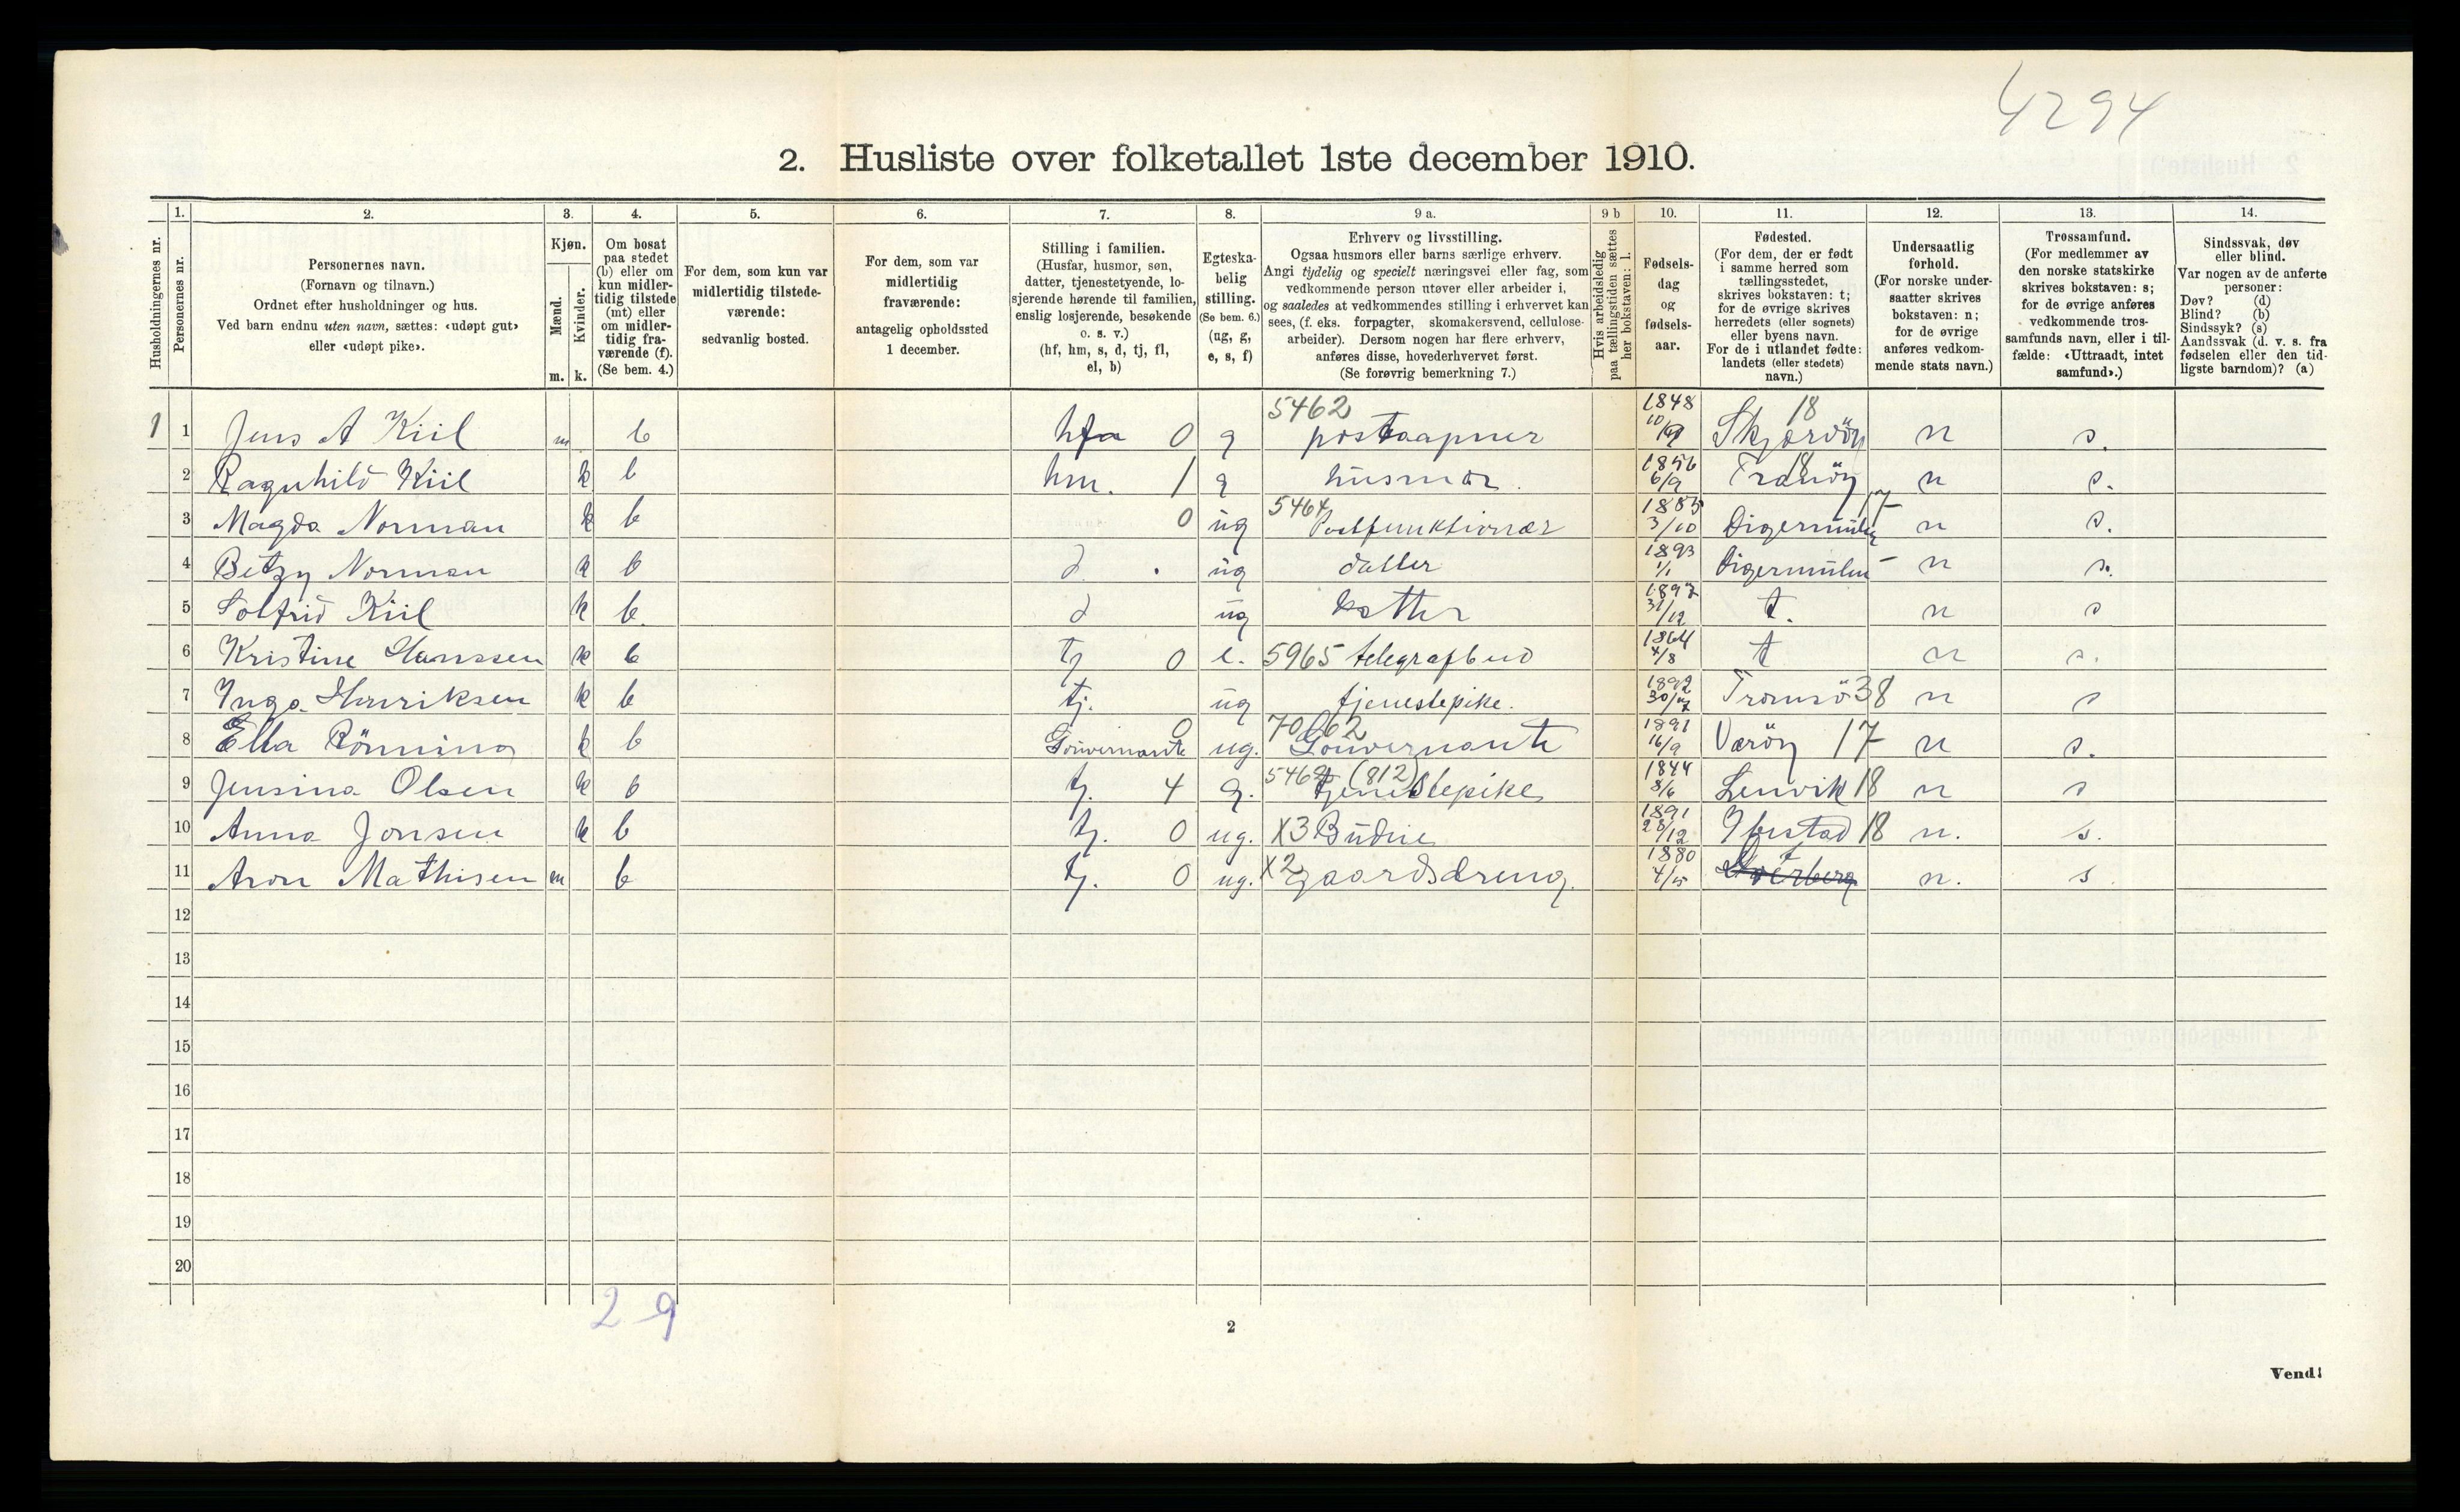 4294
2. Husliste over folketallet 1ste december 1910.
Husholdningernes nr.
1. Personernes nr.
2. Personernes navn. (Fornavn og tilnavn.) Ordnet efter husholdninger og hus. Ved barn endnu uten navn, sættes: «udøpt gut» eller «udøpt pike».
3. Kjøn. Mænd. m. Kvinder. k.
4. Om bosat paa stedet (b) eller om kun midlertidig tilstede (mt) eller om midlertidig fraværende (f). (Se bem. 4.)
5. For dem, som kun var midlertidig tilstedeværende: sedvanlig bosted.
6. For dem, som var midlertidig fraværende: antagelig opholdssted 1 december.
7. Stilling i familien. (Husfar, husmor, søn, datter, tjenestetyende, losjerende hørende til familien, enslig losjerende, besøkende o. s. v.) (hf, hm, s, d, tj, fl, el, b)
8. Egteskabelig stilling. (Se bem. 6.) (ug, g, e, s, f)
9 a. Erhverv og livsstilling. Ogsaa husmors eller barns særlige erhverv. Angi tydelig og specielt næringsvei eller fag, som vedkommende person utøver eller arbeider i, og saaledes at vedkommendes stilling i erhvervet kan sees, (f. eks. forpagter, skomakersvend, cellulosearbeider). Dersom nogen har flere erhverv, anføres disse, hovederhvervet først. (Se forøvrig bemerkning 7.)
9 b Hvis arbeidsledig paa tællingstiden sættes her bokstaven: l.
10. Fødselsdag og fødselsaar.
11. Fødested. (For dem, der er født i samme herred som tællingsstedet, skrives bokstaven: t; for de øvrige skrives herredets (eller sognets) eller byens navn. For de i utlandet fødte: landets (eller stedets) navn.)
12. Undersaatlig forhold. (For norske undersaatter skrives bokstaven: n; for de øvrige anføres vedkommende stats navn.)
13. Trossamfund. (For medlemmer av den norske statskirke skrives bokstaven: s; for de øvrige anføres vedkommende trossamfunds navn, eller i tilfælde: «Uttraadt, intet samfund».)
14. Sindssvak, døv eller blind. Var nogen av de anførte personer: Døv? (d) Blind? (b) Sindssyk? (s) Aandssvak (d. v. s. fra fødselen eller den tidligste barndom)? (a)
1 1 Jens A Kiil m b hfa 0 g 5462 postaapner 1848 10/9 Skjærvöy 18 n s.
2 Ragnhild Kiil k b hm. 1 g husmor. 1856 6/9 Tranöy 18 n s.
3 Magda Norman k b 0 ug 5464 Postfunktionær 1885 3/10 Digermulen 17 n s.
4 Betzy Norman k b d. ug datter 1893 1/1 Digermulen n s.
5 Solfrid Kiil k b. d ug datter 1897 31/12 t. n s
6 Kristine Hanssen k b tj 0 e. 5965 telegrafbud 1864 4/8 t n s.
7 Inga Henriksen k b tj. ug tjenestepike. 1892 Tromsö 38 n s
8 Ella Rönning k b Gouvernante 0 ug. 70062 Gouvernante 1891 16/9 Væröy 17 n s.
9 Jensina Olsen k b tj. 4 g. 5462 (812) tjenestepike 1844 8/6 Lenvik 18 n s
10 Anna Jonsen k b tj. 0 ug. X3 Budeie 1891 28/12 Ibestad 18 n. s.
11 Aron Mathisen m b tj. 0 ug. X2 gaardsdreng. 1880 4/5 t n. s.
12
13
14
15
16
17
18
19
20
2 9
2
Vend!